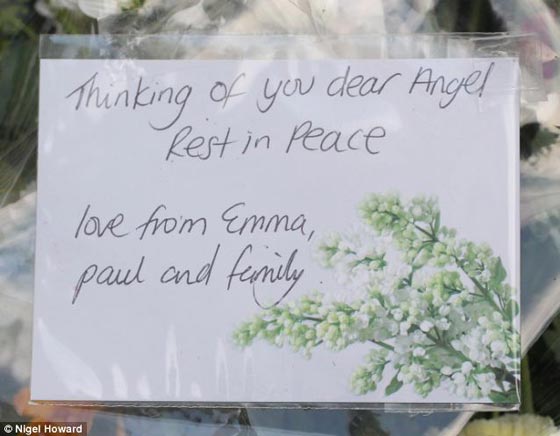 Thinking of you dear Angel
Rest in Peace
love from Emma,
paul and family
© Nigel Howard